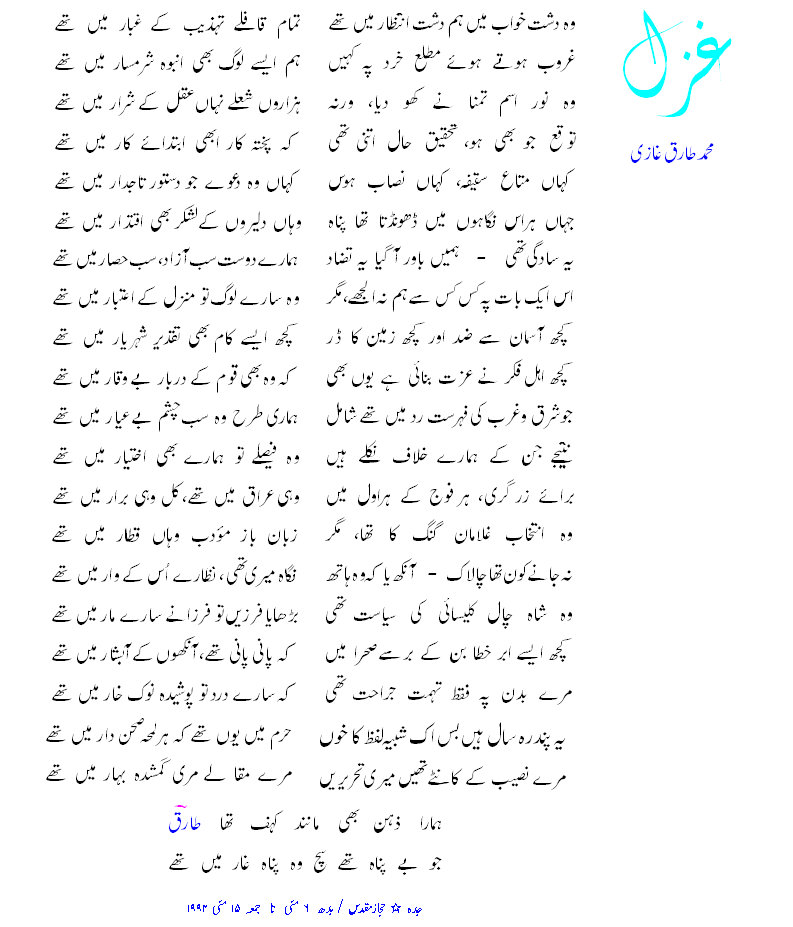 غزل
محمد طارق غازی
وہ دشت خواب میں ہم دشت انتظار میں تھے تمام قافلے تہذیب کے غبار میں تھے
غروب ہوتے ہوئے مطلع خرد پہ کہیں ہم ایسے لوگ بھی انبوہ شرمسار میں تھے
وہ نور اسم تمنا نے کھو دیا، ورنہ ہزاروں شعلے نہاں عقل کے شرار میں تھے
توقع جو بھی ہو، تحقیق حال اتنی تھی کہ پختہ کار ابھی ابتدائے کار میں تھے
کہاں متاع سقیفہ، کہاں نصاب ہوس کہاں وہ دعوے جو دستور تاجدار میں تھے
جہاں ہراس نگاہوں میں ڈھونڈتا تھا پناہ وہاں دلیروں کے لشکر بھی اقتدار میں تھے
یہ سادگی تھی - ہمیں باور آ گیا یہ تضاد ہمارے دوست سب آزاد، سب حصار میں تھے
اس ایک بات پہ کس کس سے ہم نہ الجھے، مگر وہ سارے لوگ تو منزل کے اعتبار میں تھے
کچھ آسمان سے ضد اور کچھ زمین کا ڈر کچھ ایسے کام بھی تقدیر شہریار میں تھے
کچھ اہل فکر نے عزت بنائی ہے یوں بھی کہ وہ بھی قوم کے دربار بے وقار میں تھے
جو شرق و غرب کی فہرست رد میں تھے شامل ہماری طرح وہ سب چشم بے عیار میں تھے
نتیجے جن کے ہمارے خلاف نکلے ہیں وہ فیصلے تو ہمارے بھی اختیار میں تھے
برائے زر گری، ہر فوج کے ہراول میں وہی عراق میں تھے، کل وہی برار میں تھے
وہ انتخاب غلامان گنگ کا تھا، مگر زبان باز مؤدب وہاں قطار میں تھے
نہ جانے کون تھا چالاک - آنکھ یا کہ وہ ہاتھ نگاہ میری تھی، نظارے اُس کے وار میں تھے
وہ شاہ چال کلیسائی کی سیاست تھی بڑھایا فرزیں تو فرزانے سارے مار میں تھے
کچھ ایسے ابر خطا بن کے برسے صحرا میں کہ پانی پانی تھے، آنکھوں کے آبشار میں تھے
مرے بدن پہ فقط تہمت جراحت تھی کہ سارے درد تو پوشیدہ نوک خار میں تھے
یہ پندرہ سال ہیں بس اک شبیہ لفظ کا خوں حرم میں یوں تھے کہ ہر لمحہ صحن دار میں تھے
مرے نصیب کے کانٹے تھیں میری تحریریں مرے مقالے مری گمشدہ بہار میں تھے
ہمارا ذہن بھی مانند کہف تھا طارق
جو بے پناہ تھے سچ وہ پناہ غار میں تھے
جدہ ☆ حجاز مقدس / بدھ ۶ مئی تا جمعہ ۱۵ مئی ۱۹۹۲